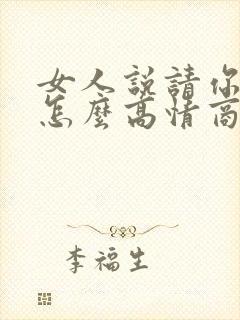 女人說請你
怎麼高情商
李福生